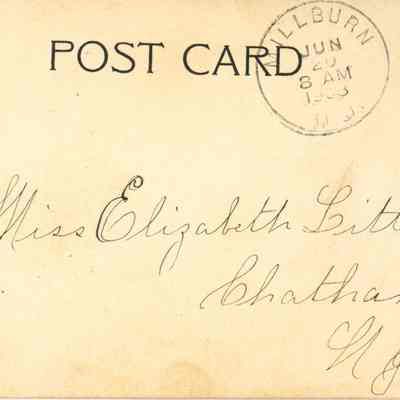 POST CARD
MILLBURN
JUN
20
8 AM
N.J.
Miss Elizabeth Litt
Chatha
N J